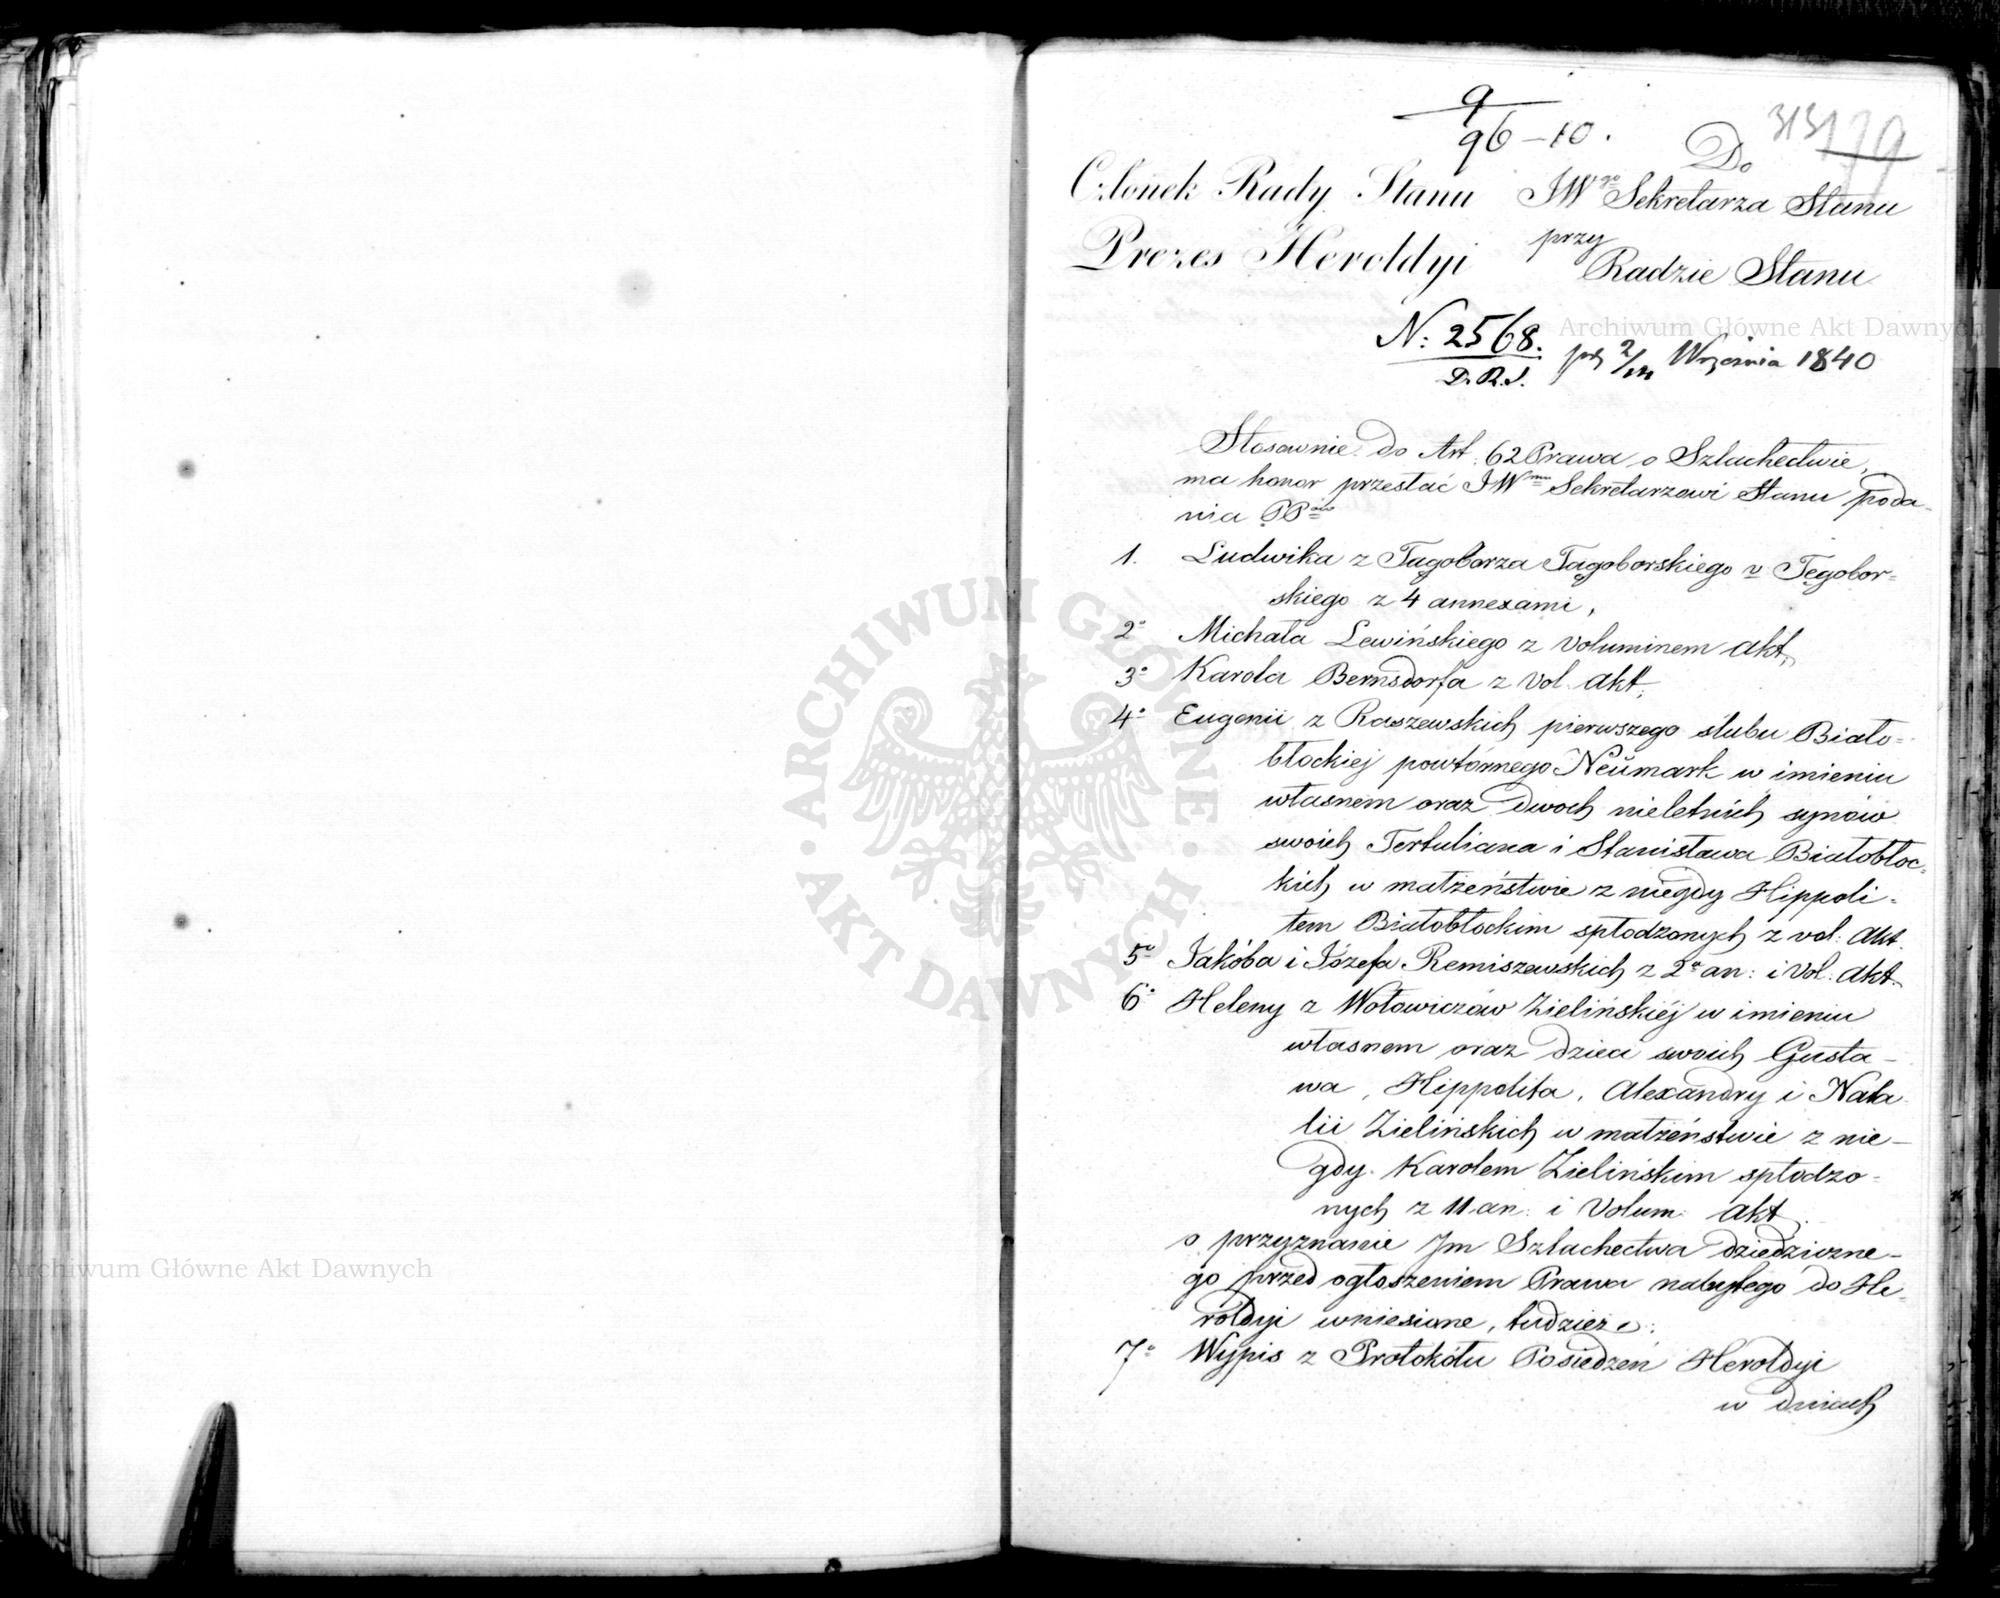 9
96 – 10.
313
179
Do
Członek Rady Stanu
Prezes Heroldyi
JWgo Sekretarza Stanu
przy
Radzie Stanu
N: 2568.
D.R.S.
2/14 Września 1840
Stosownie do Art. 62 Prawa o Szlachectwie,
ma honor przesłać JWmu Sekretarzowi Stanu poda-
nia PPów
1. Ludwika z Tągoborza Tągoborskiego v Tęgobor=
skiego z 4 annexami,
2o Michała Lewińskiego z voluminem akt,
3o Karola Bernsdorfa z vol. akt,
4o Eugenii z Raszewskich pierwszego ślubu Biało=
błockiej powtórnego Neümark w imieniu
własnem oraz dwoch nieletnich synów
swoich Tertuliana i Stanisława Białobłoc-
kich w małżeństwie z niegdy Hippoli-
tem Białobłockim spłodzonych z vol: akt.
5o Jakóba i Józefa Remiszewskich z 2a an: i vol. akt.
6o Heleny z Wołowiczów Zielińskiéj w imieniu
własnem oraz dzieci swoich Gusta-
wa, Hippolita, Alexandry i Nata-
lii Zielińskich w małżeństwie z nie-
gdy Karolem Zielińskim spłodzo=
nych z 11 an: i Volum: akt,
o przyznanie Jm Szlachectwa dziedziczne-
go przed ogłoszeniem Prawa nabytego do He-
roldyi wniesione, tudzież:
7o Wypis z Protokółu Posiedzeń Heroldyi
w dniach
Archiwum Główne Akt Dawnych
Archiwum Główne Akt Dawnych
ARCHIWUM GŁÓWNE AKT DAWNYCH